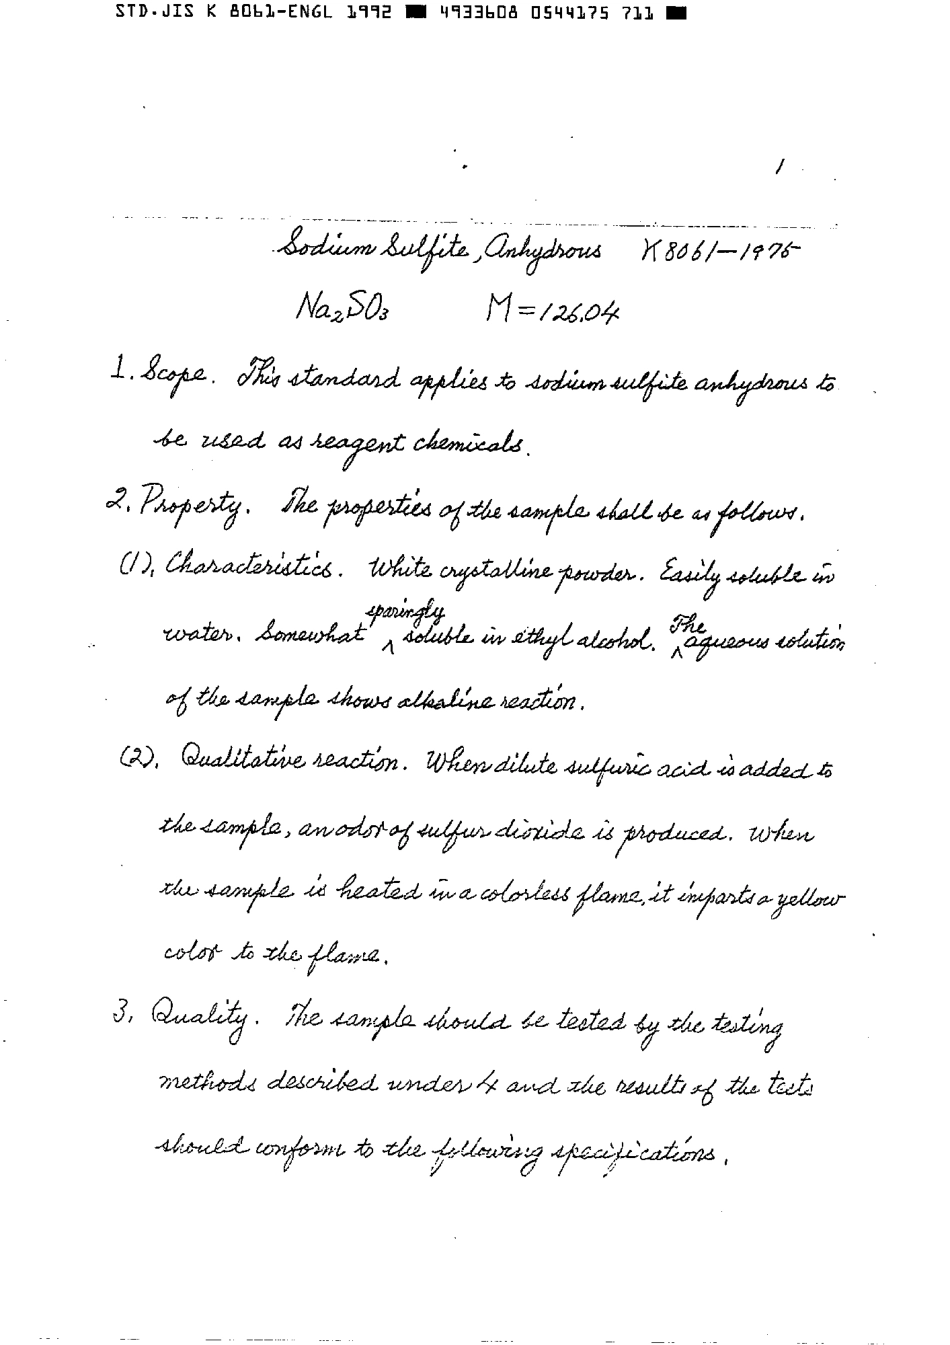 STD.JIS K 8061-ENGL 1992 ■ 4933608 0544175 711 ■
1
Sodium Sulfite, Anhydrous K 8061-1975
Na₂SO₃ M=126.04
1. Scope. This standard applies to sodium sulfite anhydrous to
be used as reagent chemicals.
2. Property. The properties of the sample shall be as follows.
(1), Characteristics. White crystalline powder. Easily soluble in
water. Somewhat sparingly soluble in ethyl alcohol. The aqueous solution
of the sample shows alkaline reaction.
(2), Qualitative reaction. When dilute sulfuric acid is added to
the sample, an odor of sulfur dioxide is produced. When
the sample is heated in a colorless flame, it imparts a yellow
color to the flame.
3, Quality. The sample should be tested by the testing
methods described under 4 and the results of the tests
should conform to the following specifications.